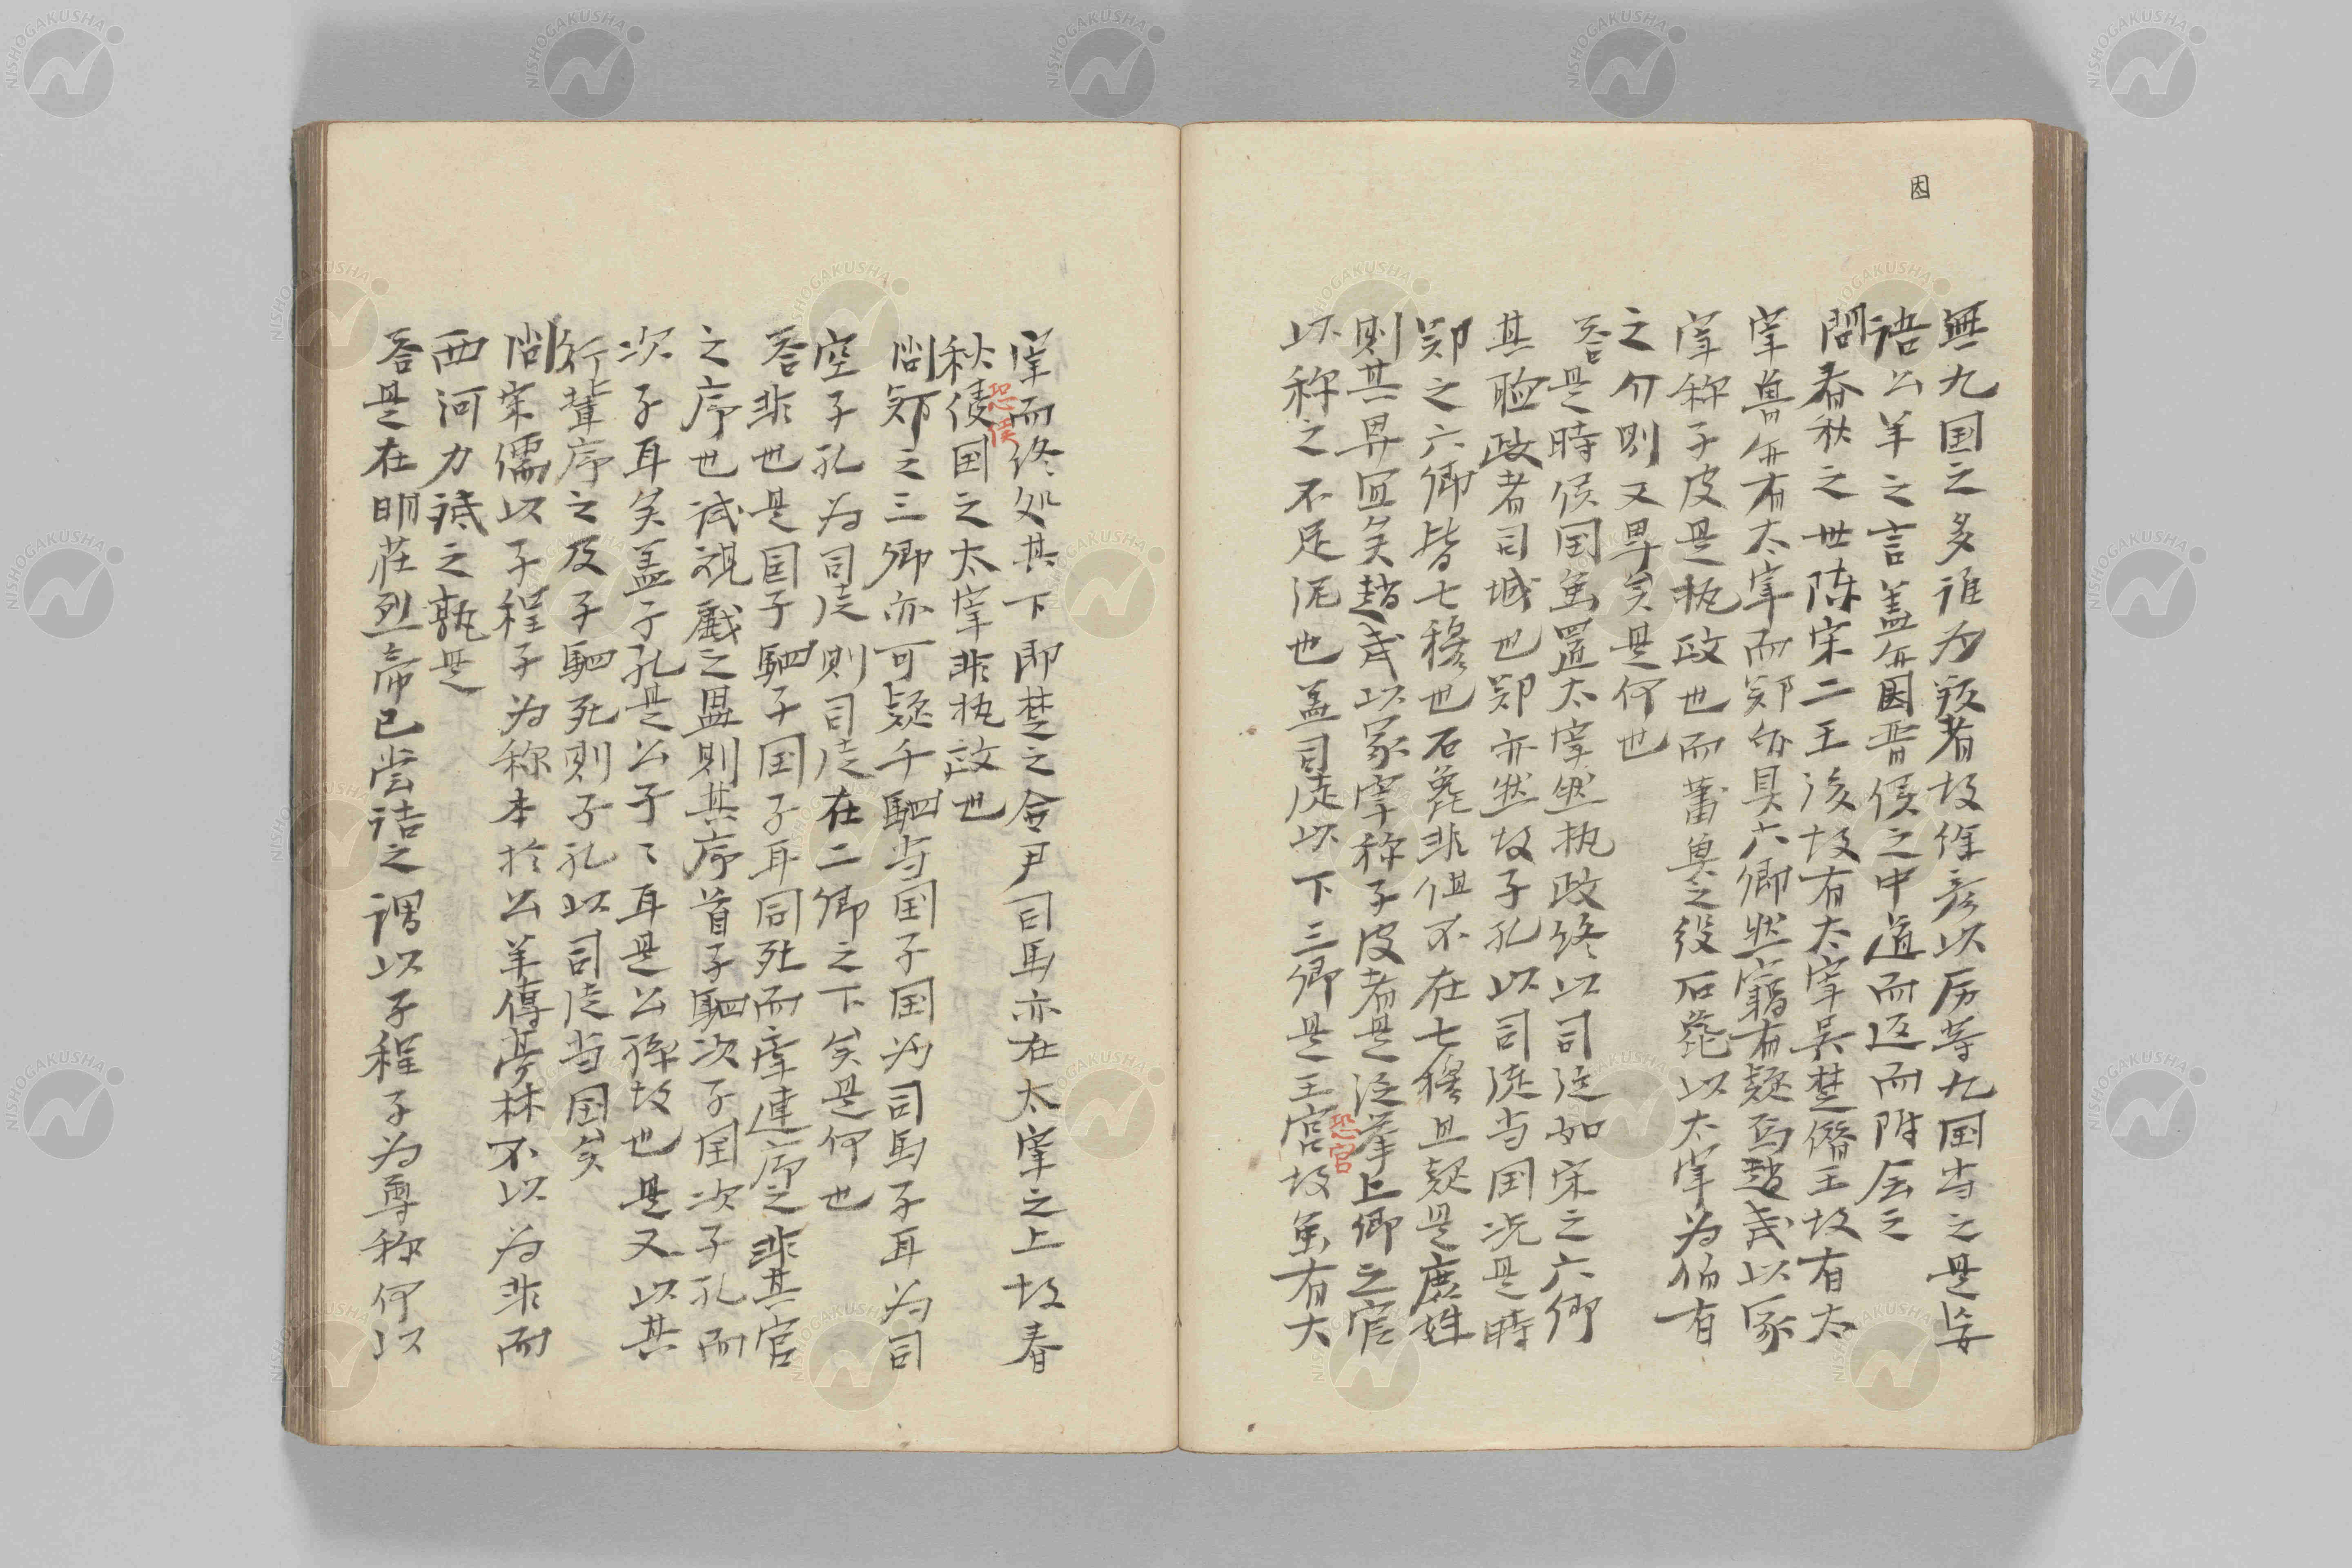 因
無九国之多誰为叛者故徐彦以厉等九国当之是妄
語公羊之言盖無因晋侯之中道而返而附会之
問春秋之世陈宋二王後故有太宰吴楚僭王故有太
宰魯無有太宰而郑备具六卿然竊有疑焉趙武以冢
宰称子皮是执政也而蕭魚之役石㲋以太宰为伯有
之介则又卑矣是何也
答是時侯国虽置太宰然执政终以司徒如宋之六卿
其聴政者司城也郑亦然故子孔以司徒当国况是時
郑之六卿皆七穆也石㲋非但不在七穆且疑是庶姓
则其畀宜矣趙武以冢宰称子皮者是泛举上卿之官
以称之不足泥也盖司徒以下三卿是王官故虽有大
恐官
宰而终処其下即楚之令尹司馬亦在太宰之上故春
恐侯
秋倰国之太宰非执政也
问郑之三卿亦可疑子駟当国子国为司馬子耳为司
空子孔为司徒则司徒在二卿之下矣是何也
答非也是国子駟子国子耳同死而牽連序之非其官
之序也试视戲之盟则其序首子駟次子国次子孔而
次子耳矣盖子孔是公子子耳是公孫故也是又以其
行輩序之及子駟死则子孔以司徒当国矣
问宋儒以子程子为称本於公羊傳亭林不以为非而
西河力詆之孰是
答是在明莊烈帝已尝诘之謂以子程子为尊称何以
NISHOGAKUSHA